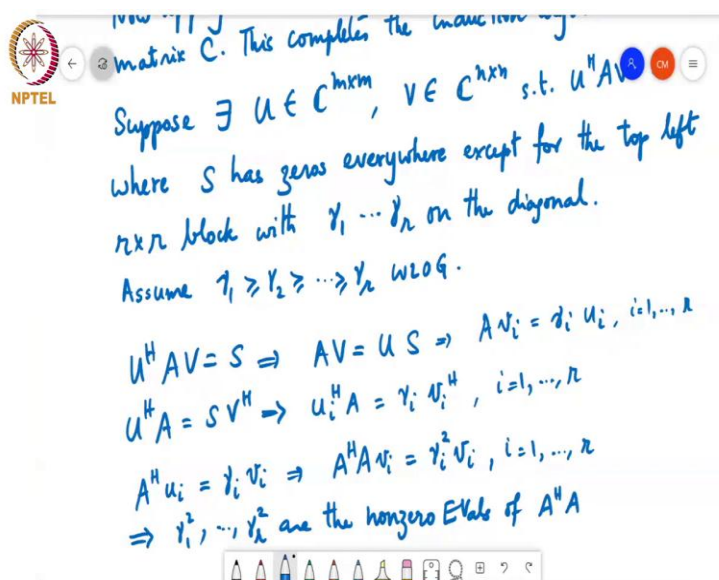 matrix C. This completes the induction
Suppose ∃ U ∈ C^{m×m}, V ∈ C^{n×n} s.t. U^H AV
where S has zeros everywhere except for the top left
r×r block with γ₁ ⋯ γᵣ on the diagonal.
Assume γ₁ ≥ γ₂ ≥ ⋯ ≥ γᵣ WLOG.
U^H AV = S ⇒ AV = U S ⇒ A vᵢ = γᵢ uᵢ, i=1,..., r
U^H A = S V^H ⇒ uᵢ^H A = γᵢ vᵢ^H, i=1,..., r
A^H uᵢ = γᵢ vᵢ ⇒ A^H A vᵢ = γᵢ² vᵢ, i=1,..., r
⇒ γ₁², ..., γᵣ² are the nonzero EVals of A^H A
NPTEL
CM